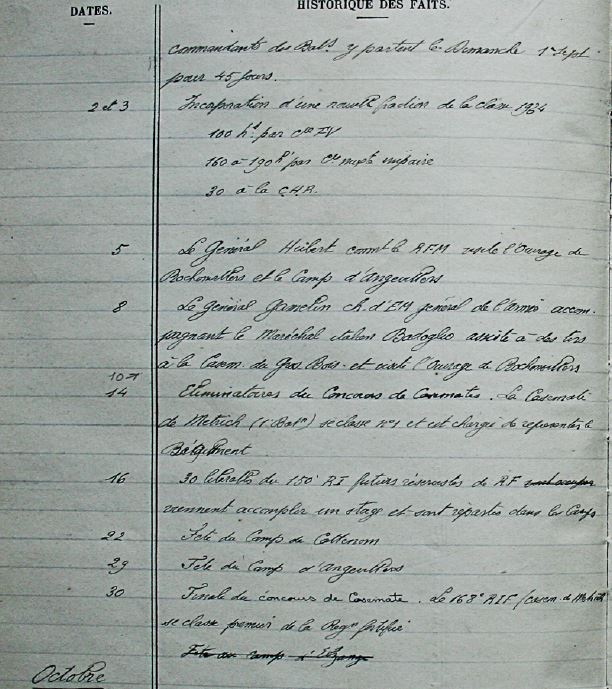 DATES.
HISTORIQUE DES FAITS.
commandants des Bat^ns y partent le Dimanche 1^er Sept
pour 45 jours.
2 et 3 Incorporation d'une nouvelle fraction de la classe 1934
100 h^s par C^ie FV
160 à 190 h^s par C^ie mixte
30 à la C.H.R.
5 Le Général Huibert comt le RFM visite l'Ouvrage de
Rochonvillers et le Camp d'Angevillers
8 Le général Gamelin ch. d'EM général de l'Armée accom-
pagnant le Maréchal italien Badoglio assiste à des tirs
à la Casem. du Gros Bois et visite l'Ouvrage de Rochonvillers
10 et
14 Eliminatoires du Concours de Casemates. La Casemate
de Métrich (1^er Bat^on) se classe n°1 et est chargée de représenter le
Régiment
16 30 libérables du 150^e RI futurs réservistes de RF
viennent accomplir un stage et sont répartis dans les Camps
22 Fête du Camp de Cattenom
29 Fête du Camp d'Angevillers
30 Finale du concours de Casemate. Le 168^e RIF (casem. de Métrich)
se classe premier de la Rég^on fortifié
Fête du camp d'Elzange
Octobre